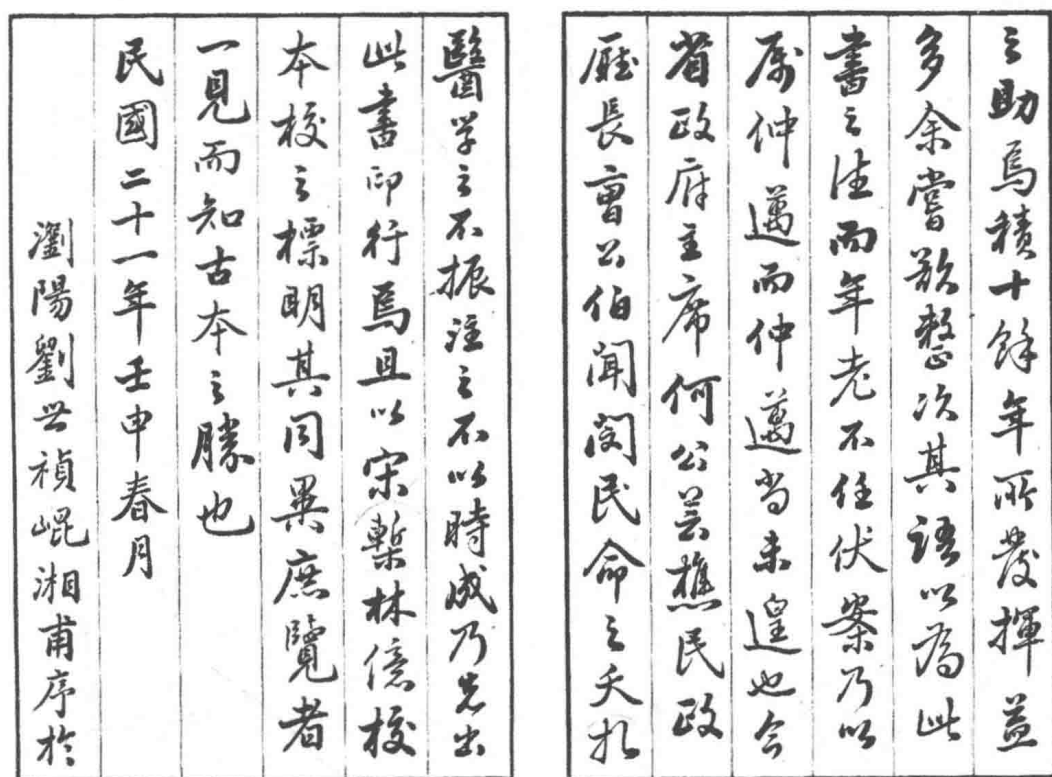 之助焉積十餘年所發揮益
多余嘗欲整次其語以為此
書之注而年老不任伏案乃以
屬仲邁而仲邁尚未遑也今
省政府主席何公芸樵民政
廳長曹公伯聞閔民命之夭札
醫学之不振注之不以時成乃先出
此書印行焉且以宋槧林億校
本校之標明其同異庶覽者
一見而知古本之勝也
民國二十一年壬申春月
瀏陽劉世禎崐湘甫序於